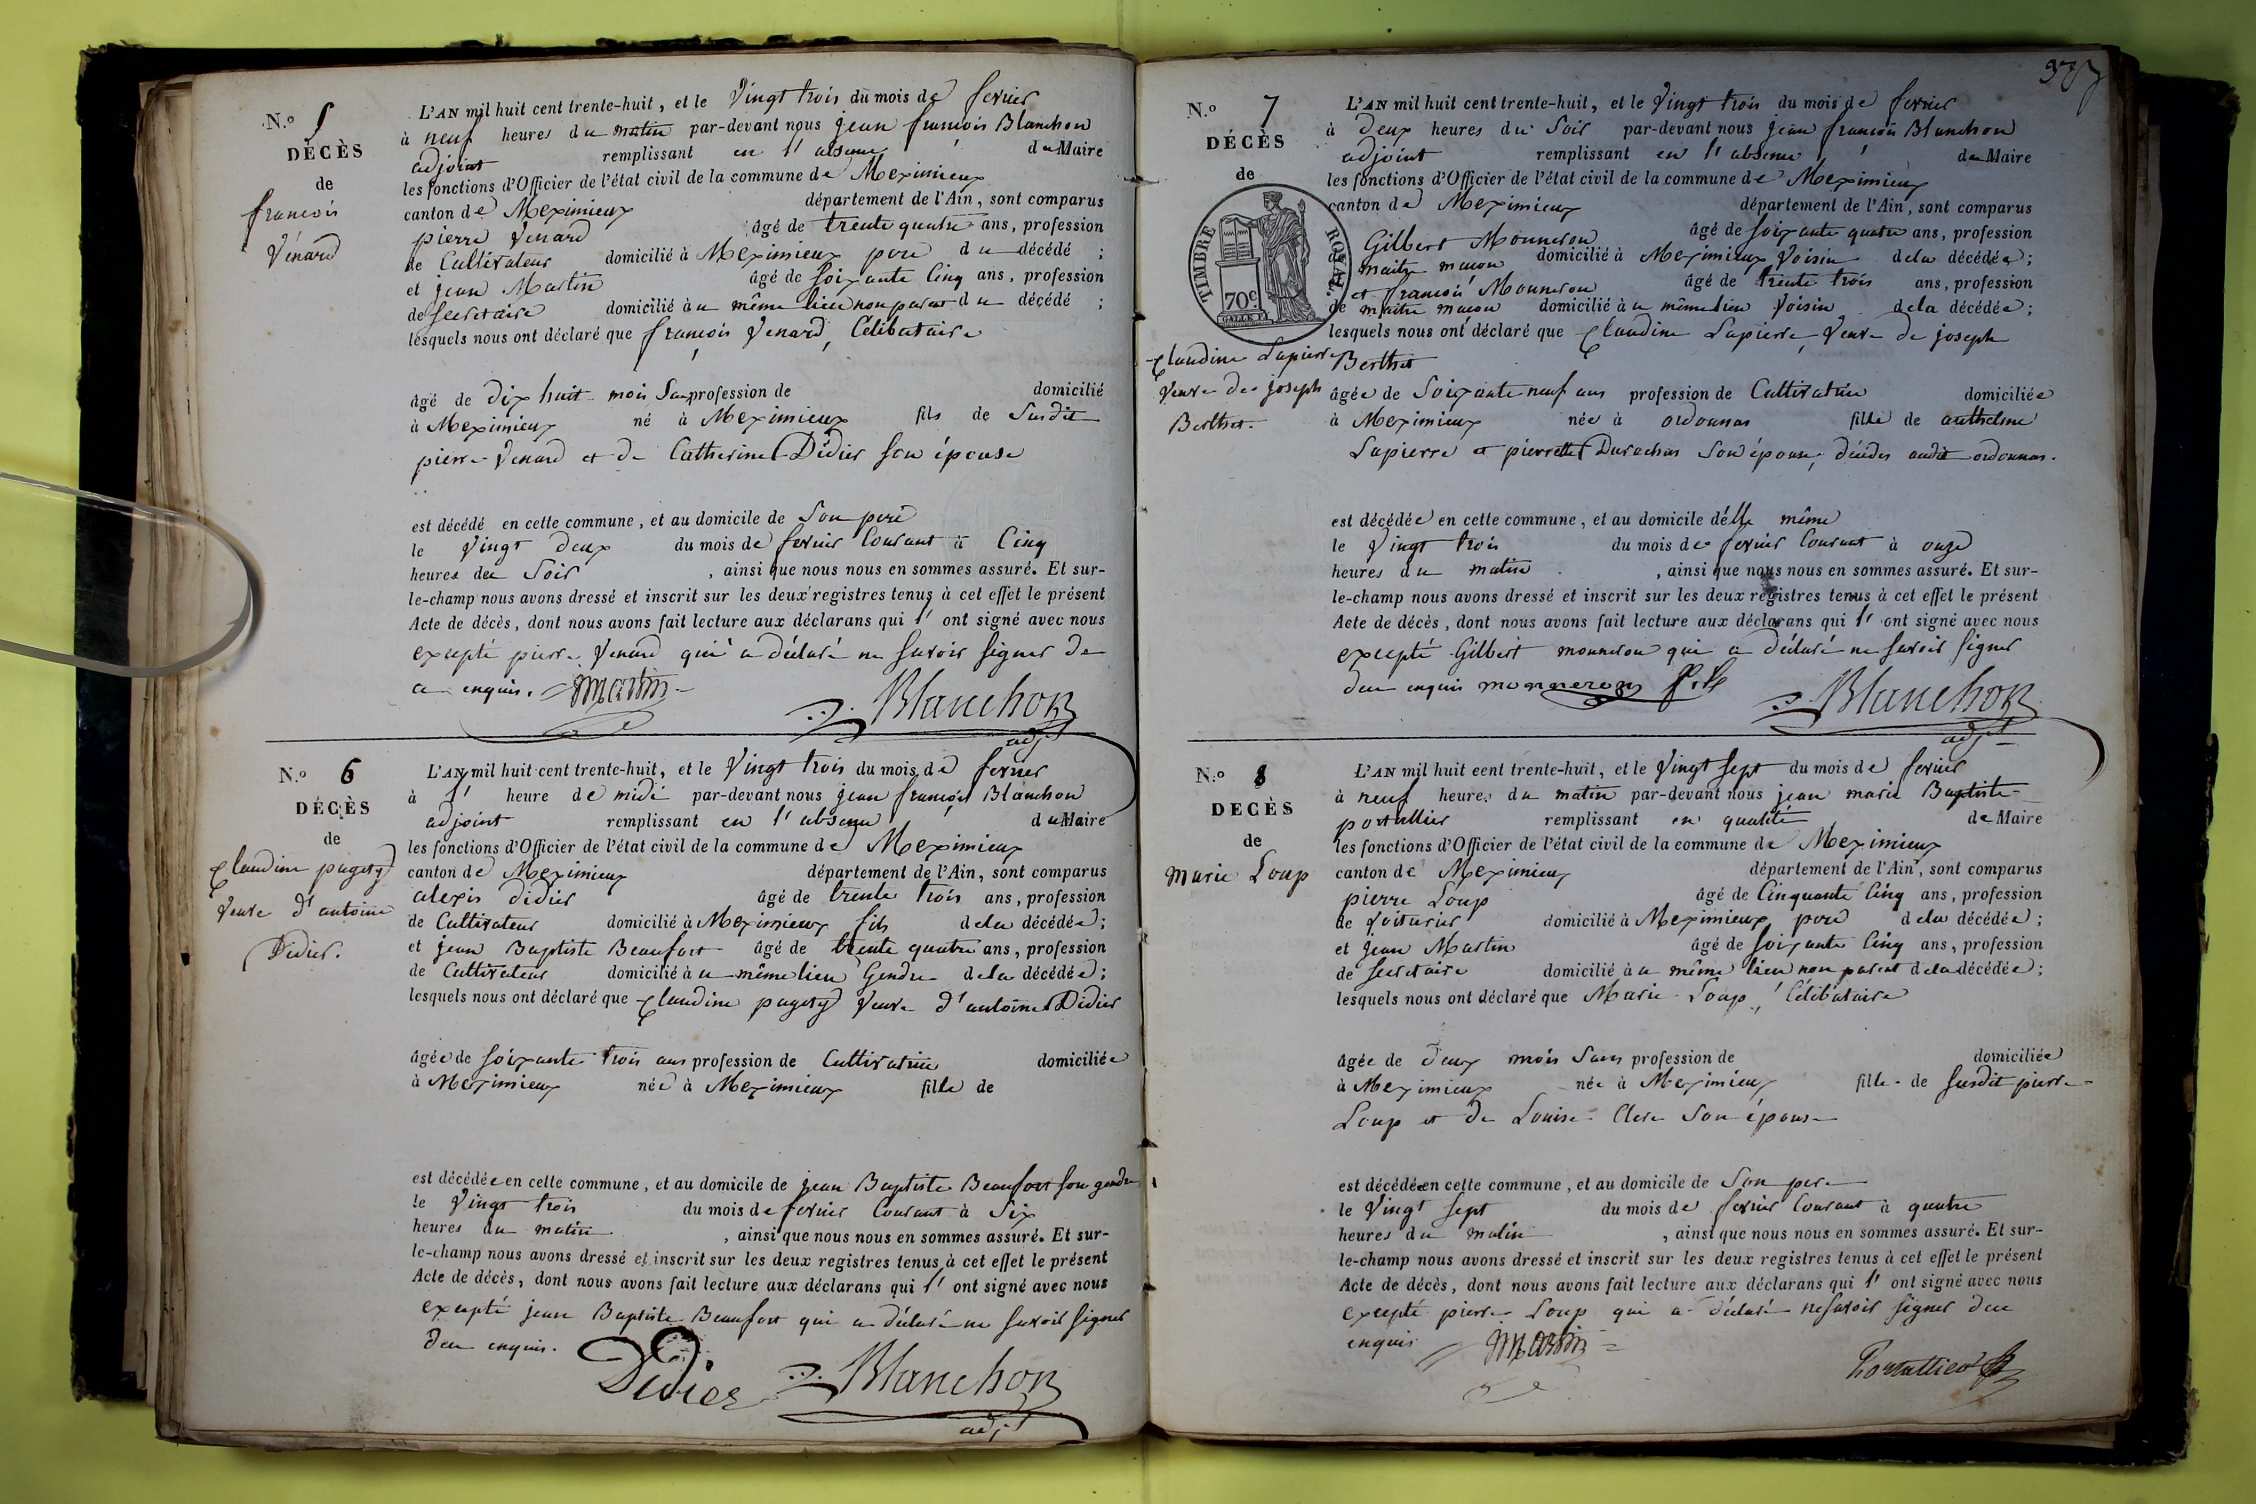 N.o 5
DÉCÈS
de
francois
Vénard
L'AN mil huit cent trente-huit, et le Vingt trois du mois de fevrier
à neuf heures du matin par-devant nous jean francois Blanchon
adjoint remplissant en l'absence du Maire
les fonctions d'Officier de l'état civil de la commune de Meximieux
canton de Meximieux département de l'Ain, sont comparus
pierre Venard âgé de trente quatre ans, profession
de Cultivateur domicilié à Meximieux pere du décédé ;
et jean Martin âgé de soixante Cinq ans, profession
de secretaire domicilié à u même lieu non parent du décédé ;
lesquels nous ont déclaré que francois Venard, Célibataire
âgé de dix huit mois Sans profession de domicilié
à Meximieux né à Meximieux fils de Susdit
pierre Venard et de Catherine Didier son épouse
est décédé en cette commune, et au domicile de Son pere
le Vingt deux du mois de fevrier Courant à Cinq
heures du Soir , ainsi que nous nous en sommes assuré. Et sur-
le-champ nous avons dressé et inscrit sur les deux registres tenus à cet effet le présent
Acte de décès, dont nous avons fait lecture aux déclarans qui l' ont signé avec nous
excepté pierre Venard qui a déclaré ne savoir signer de
ce enquis. Martin
Blanchon
adjt
N.o 6
DÉCÈS
de
Claudine pugety
Veuve d'antoine
Didier.
L'AN mil huit cent trente-huit, et le Vingt trois du mois de fevrier
à l' heure de midi par-devant nous jean francois Blanchon
adjoint remplissant en l'absence du Maire
les fonctions d'Officier de l'état civil de la commune de Meximieux
canton de Meximieux département de l'Ain, sont comparus
alexis didier âgé de trente trois ans, profession
de Cultivateur domicilié à Meximieux fils de la décédée ;
et jean Baptiste Beaufort âgé de trente quatre ans, profession
de Cultivateur domicilié à u même lieu Gendre de la décédée ;
lesquels nous ont déclaré que Claudine pugety Veuve d'antoine Didier
âgée de soixante trois ans profession de Cultivatrice domiciliée
à Meximieux née à Meximieux fille de
est décédée en cette commune, et au domicile de jean Baptiste Beaufort son gendre
le Vingt trois du mois de fevrier Courant à Six
heures du matin , ainsi que nous nous en sommes assuré. Et sur-
le-champ nous avons dressé et inscrit sur les deux registres tenus à cet effet le présent
Acte de décès, dont nous avons fait lecture aux déclarans qui l' ont signé avec nous
excepté jean Baptiste Beaufort qui a déclaré ne savoir signer
de ce enquis.
Didier Blanchon
adjt
N.o 7
DÉCÈS
de
TIMBRE ROYAL.
70c
Claudine Lapierre
Veuve de joseph
Berthet.
L'AN mil huit cent trente-huit, et le Vingt trois du mois de fevrier
à deux heures du Soir par-devant nous jean francois Blanchon
adjoint remplissant en l'absence du Maire
les fonctions d'Officier de l'état civil de la commune de Meximieux
canton de Meximieux département de l'Ain, sont comparus
Gilbert Monneron âgé de soixante quatre ans, profession
de maitre macon domicilié à Meximieux Voisin de la décédée ;
et francois Monneron âgé de trente trois ans, profession
de maitre macon domicilié à u même lieu Voisin de la décédée ;
lesquels nous ont déclaré que Claudine Lapierre, Veuve de joseph
Berthet
âgée de Soixante neuf ans profession de Cultivatrice domiciliée
à Meximieux née à ordonnas fille de anthelme
Lapierre et pierrette Durochas son épouse, décédés audit ordonnas.
est décédée en cette commune, et au domicile d'elle même
le Vingt trois du mois de fevrier Courant à onze
heures du matin , ainsi que nous nous en sommes assuré. Et sur-
le-champ nous avons dressé et inscrit sur les deux registres tenus à cet effet le présent
Acte de décès, dont nous avons fait lecture aux déclarans qui l' ont signé avec nous
excepté Gilbert monneron qui a déclaré ne savoir signer
de ce enquis monneron fils
Blanchon
adjt
N.o 8
DECÈS
de
Marie Loup
L'AN mil huit cent trente-huit, et le Vingt sept du mois de fevrier
à neuf heures du matin par-devant nous jean marie Baptiste
portallier remplissant en qualité de Maire
les fonctions d'Officier de l'état civil de la commune de Meximieux
canton de Meximieux département de l'Ain, sont comparus
pierre Loup âgé de Cinquante Cinq ans, profession
de Voiturier domicilié à Meximieux, pere de la décédée ;
et jean Martin âgé de soixante Cinq ans, profession
de secretaire domicilié à u même lieu non parent de la décédée ;
lesquels nous ont déclaré que Marie Loup, Célibataire
âgée de deux mois Sans profession de domiciliée
à Meximieux née à Meximieux fille de susdit pierre
Loup et de Louise Clerc Son épouse
est décédée en cette commune, et au domicile de Son pere
le Vingt sept du mois de fevrier Courant à quatre
heures du matin , ainsi que nous nous en sommes assuré. Et sur-
le-champ nous avons dressé et inscrit sur les deux registres tenus à cet effet le présent
Acte de décès, dont nous avons fait lecture aux déclarans qui l' ont signé avec nous
excepté pierre Loup qui a déclaré ne savoir signer de ce
enquis Martin
Portallier